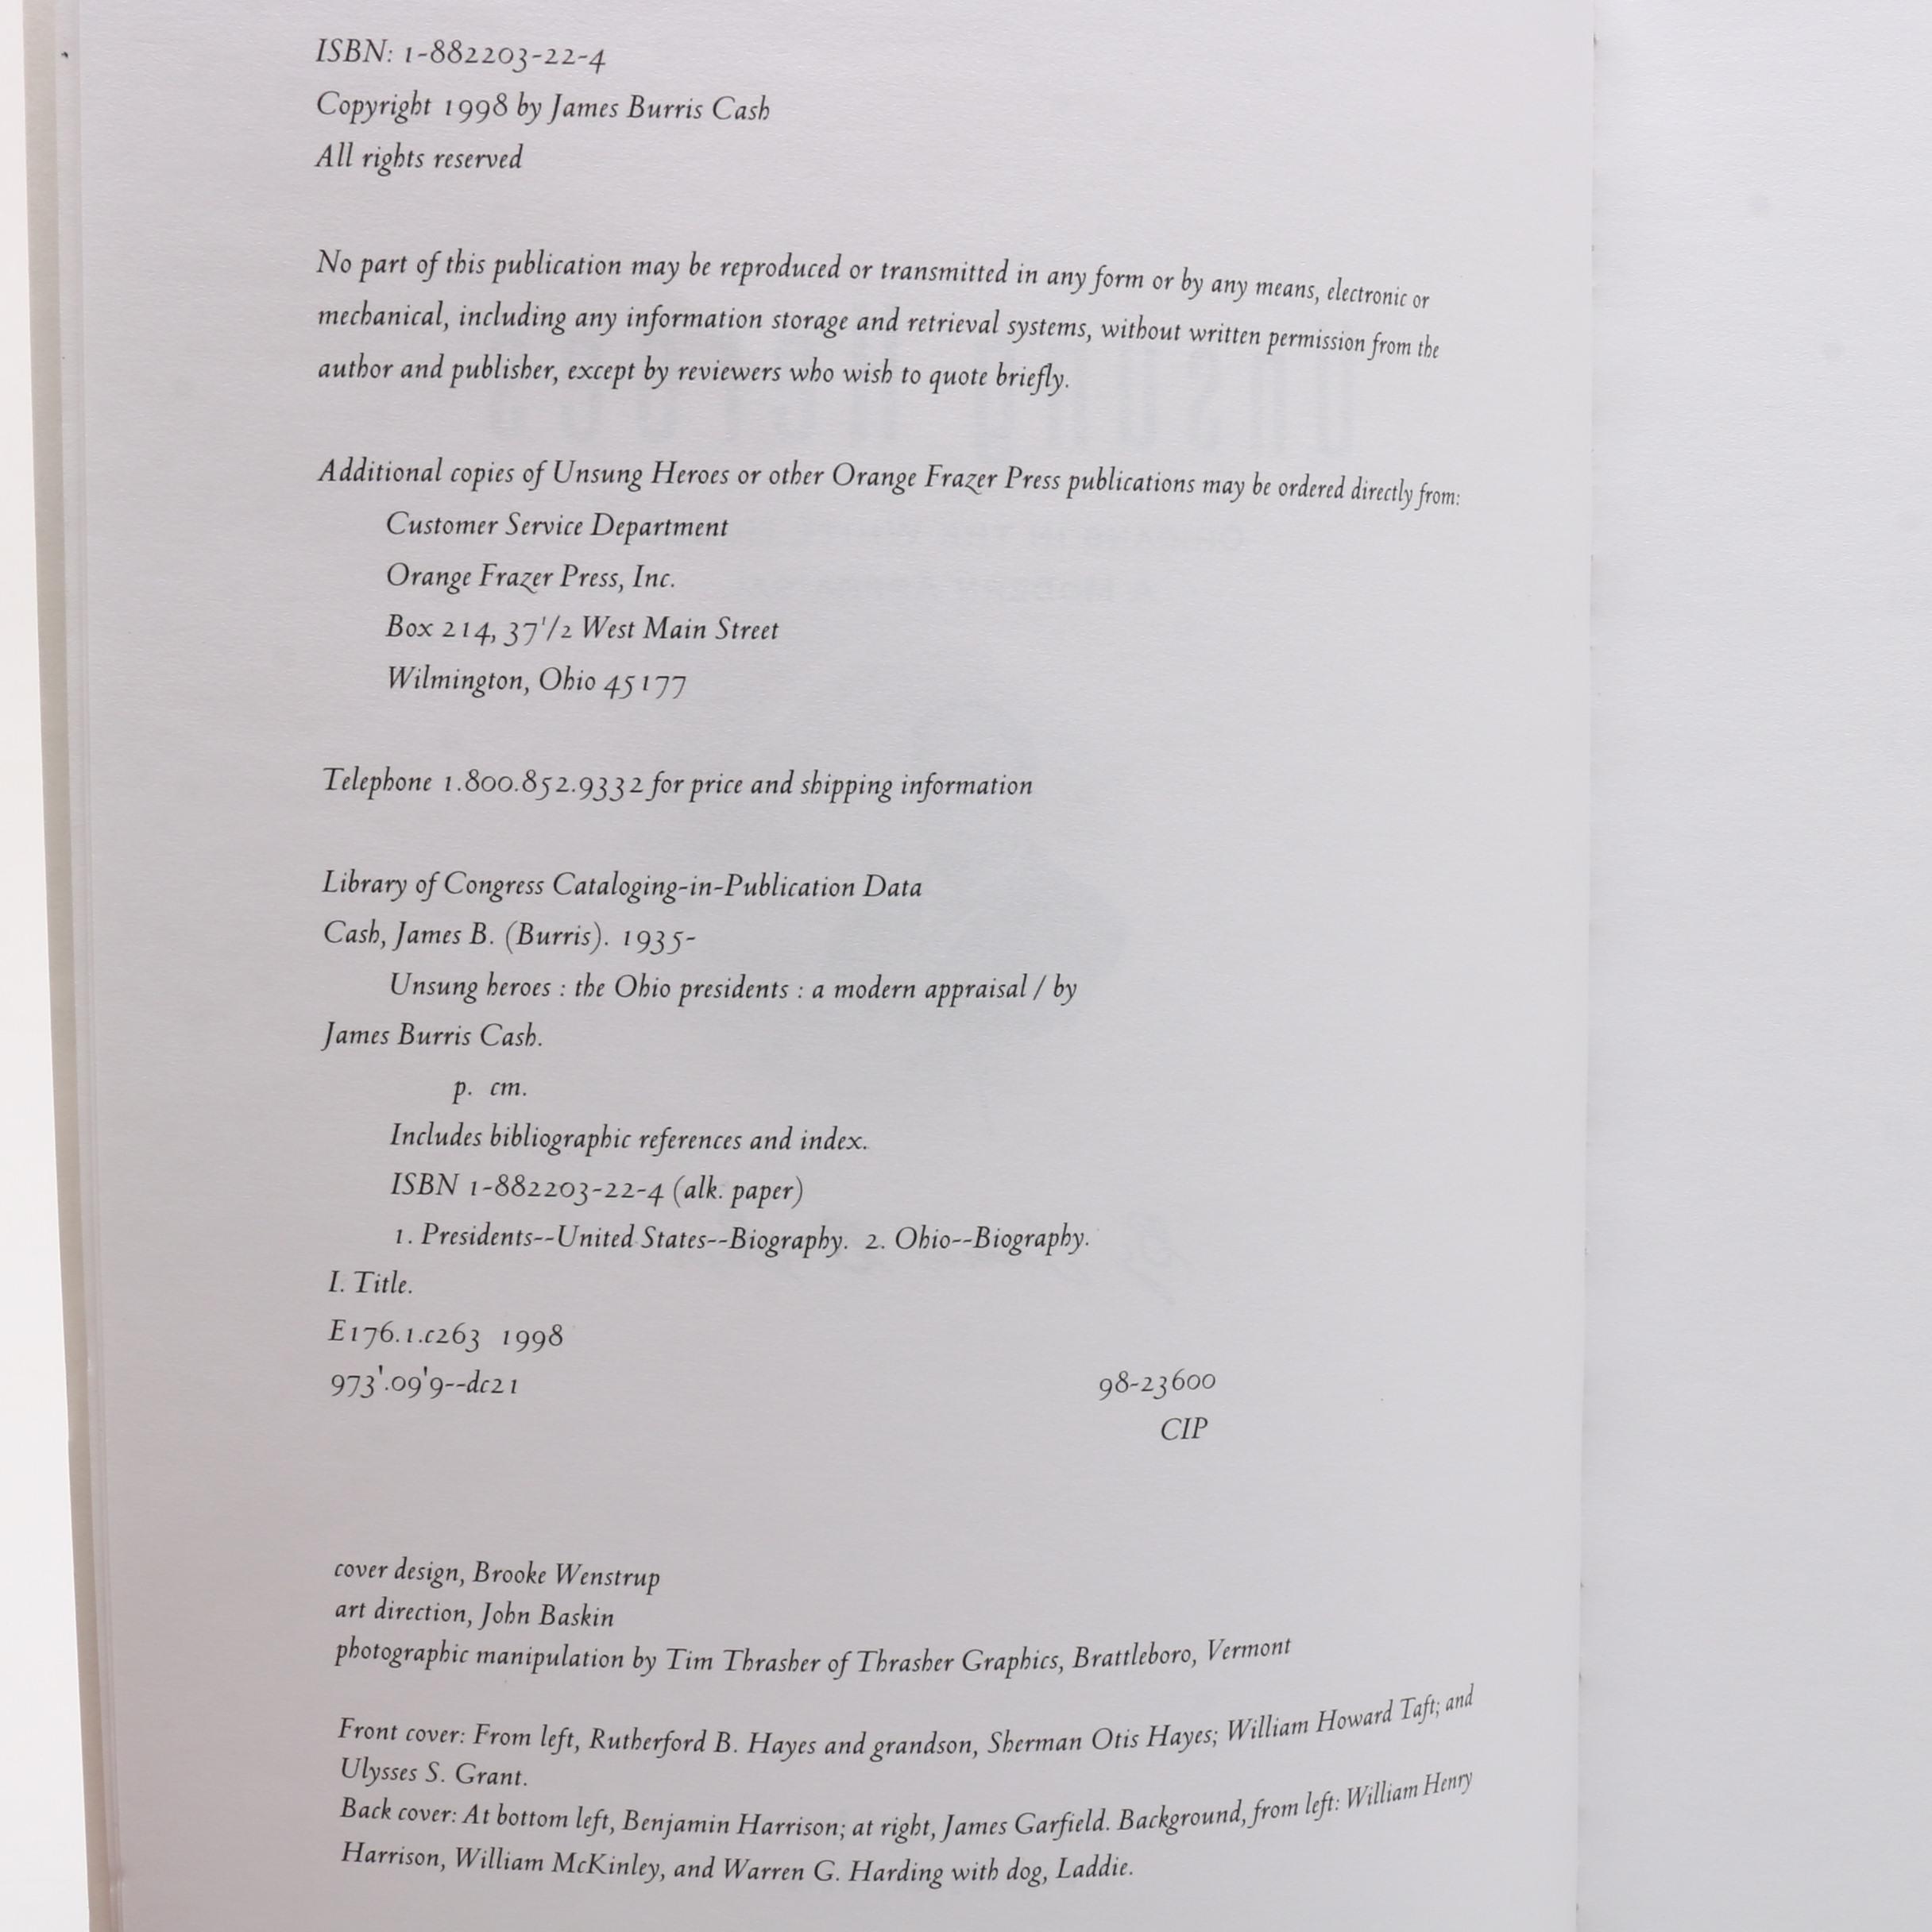 ISBN: 1-882203-22-4
Copyright 1998 by James Burris Cash
All rights reserved
No part of this publication may be reproduced or transmitted in any form or by any means, electronic or
mechanical, including any information storage and retrieval systems, without written permission from the
author and publisher, except by reviewers who wish to quote briefly.
Additional copies of Unsung Heroes or other Orange Frazer Press publications may be ordered directly from:
Customer Service Department
Orange Frazer Press, Inc.
Box 214, 37 1/2 West Main Street
Wilmington, Ohio 45177
Telephone 1.800.852.9332 for price and shipping information
Library of Congress Cataloging-in-Publication Data
Cash, James B. (Burris). 1935-
Unsung heroes : the Ohio presidents : a modern appraisal / by
James Burris Cash.
p. cm.
Includes bibliographic references and index.
ISBN 1-882203-22-4 (alk. paper)
1. Presidents--United States--Biography. 2. Ohio--Biography.
I. Title.
E176.1.c263 1998
973'.09'9--dc21 98-23600
CIP
cover design, Brooke Wenstrup
art direction, John Baskin
photographic manipulation by Tim Thrasher of Thrasher Graphics, Brattleboro, Vermont
Front cover: From left, Rutherford B. Hayes and grandson, Sherman Otis Hayes; William Howard Taft; and
Ulysses S. Grant.
Back cover: At bottom left, Benjamin Harrison; at right, James Garfield. Background, from left: William Henry
Harrison, William McKinley, and Warren G. Harding with dog, Laddie.